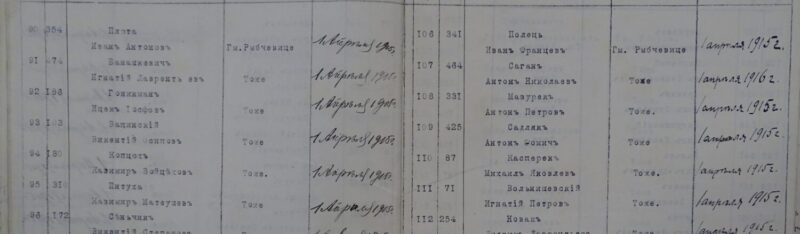 90 354 Плата
Иванъ Антоновъ Гм. Рыбчевице 1 Апрѣля 1905г.
91 474 Банашкевичъ
Игнатій Лаврентьевъ Тоже 1 Апрѣля 1905г.
92 186
Ицекъ Іосфовъ Тоже 1 Апрѣля 1905г.
93 193 Вацинскій
Викентій Осиповъ Тоже 1 Апрѣля 1905г.
94 180 Копцотъ
Казимиръ Войцѣховъ Тоже. 1 Апрѣля 1905г.
95 310 Питуха
Казимиръ Матеушевъ Тоже 1 Апрѣля 1905г.
96 172
Викентій
106 341 Полець
Иванъ Францевъ Гм. Рыбчевице 1 апреля 1915г.
107 464 Саганъ
Антонъ Николаевъ Тоже 1 апреля 1916г.
108 331 Мазурекъ
Антонъ Петровъ Тоже. 1 апреля 1915г.
109 425
Антонъ Фомичъ Тоже 1 апреля 1915г.
110 87 Касперекъ
Михаилъ Яковлевъ Тоже. 1 апреля 1915г.
111 71
Игнатій Петровъ Тоже. 1 апреля 1915г.
112 254 Новакъ